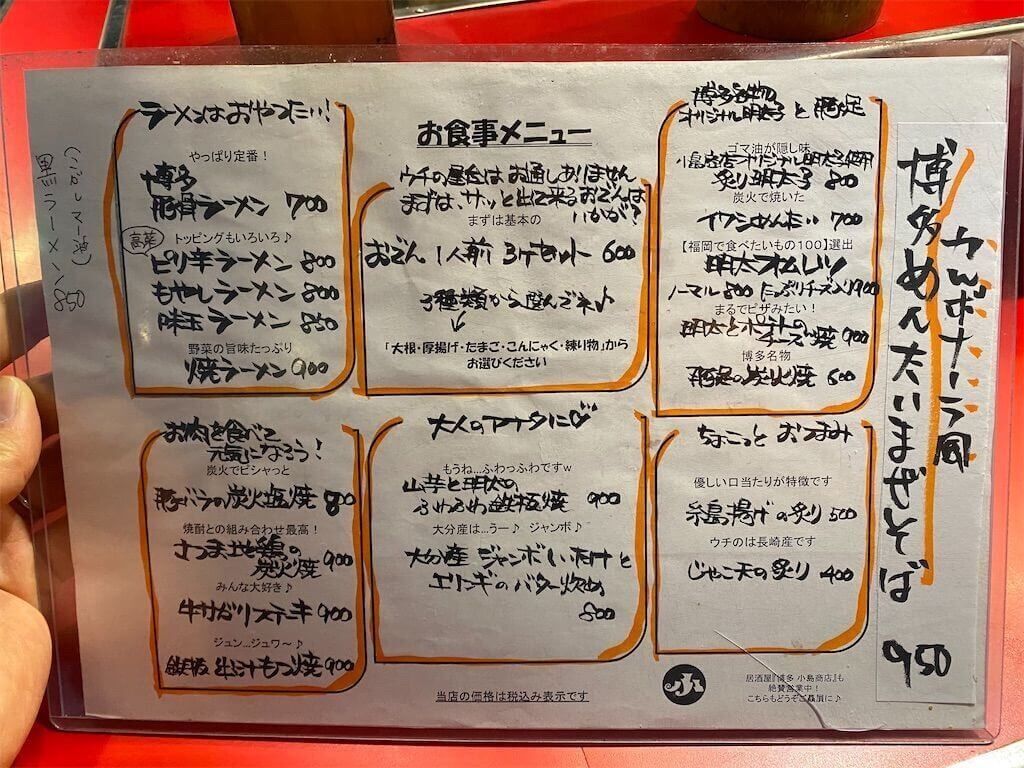 お食事メニュー
やっぱり定番！
博多
豚骨ラーメン
トッピングもいろいろ♪
高菜ラーメン
もやしラーメン
野菜の旨味たっぷり
焼ラーメン 900
黒ラーメン 850
ウチの屋台はお通しありません
まずは、サッと出て来るおでんは
いかが？
まずは基本の
おでん 1人前 3ケセット 600
3種類から選んでネ♪
「大根・厚揚げ・たまご・こんにゃく・練り物」から
お選びください
博多名物
オリジナル明太子と豚足
ゴマ油が隠し味
炙り明太子 800
炭火で焼いた
イワシめんたい 700
【福岡で食べたいもの100】選出
明太オムレツ
ノーマル 800 たっぷりチーズ入り 900
まるでピザみたい！
明太とポテトの
チーズ焼 900
博多名物
豚足の炭火焼 600
カルボナーラ風
博多めん太いまぜそば
950
お肉を食べて
元気になろう！
炭火でビシャっと
豚バラの炭火塩焼
焼酎との組み合わせ最高！
さつま地鶏の
炭火焼 900
みんな大好き♪
牛サガリステーキ 900
ジュン…ジュワ～♪
鉄板 牛もつ焼 900
もうね…ふわっふわですｗ
山芋と明太の
ふわふわ鉄板焼 900
大分産は…うー♪ ジャンボ♪
大分産 ジャンボしい茸と
エリンギのバター炒め
800
ちょこっと おつまみ
優しい口当たりが特徴です
糸島揚げの炙り 500
ウチのは長崎産です
じゃこ天の炙り 400
当店の価格は税込み表示です
居酒屋『博多 小島商店』も
絶賛営業中！
こちらもどうぞご贔屓に♪